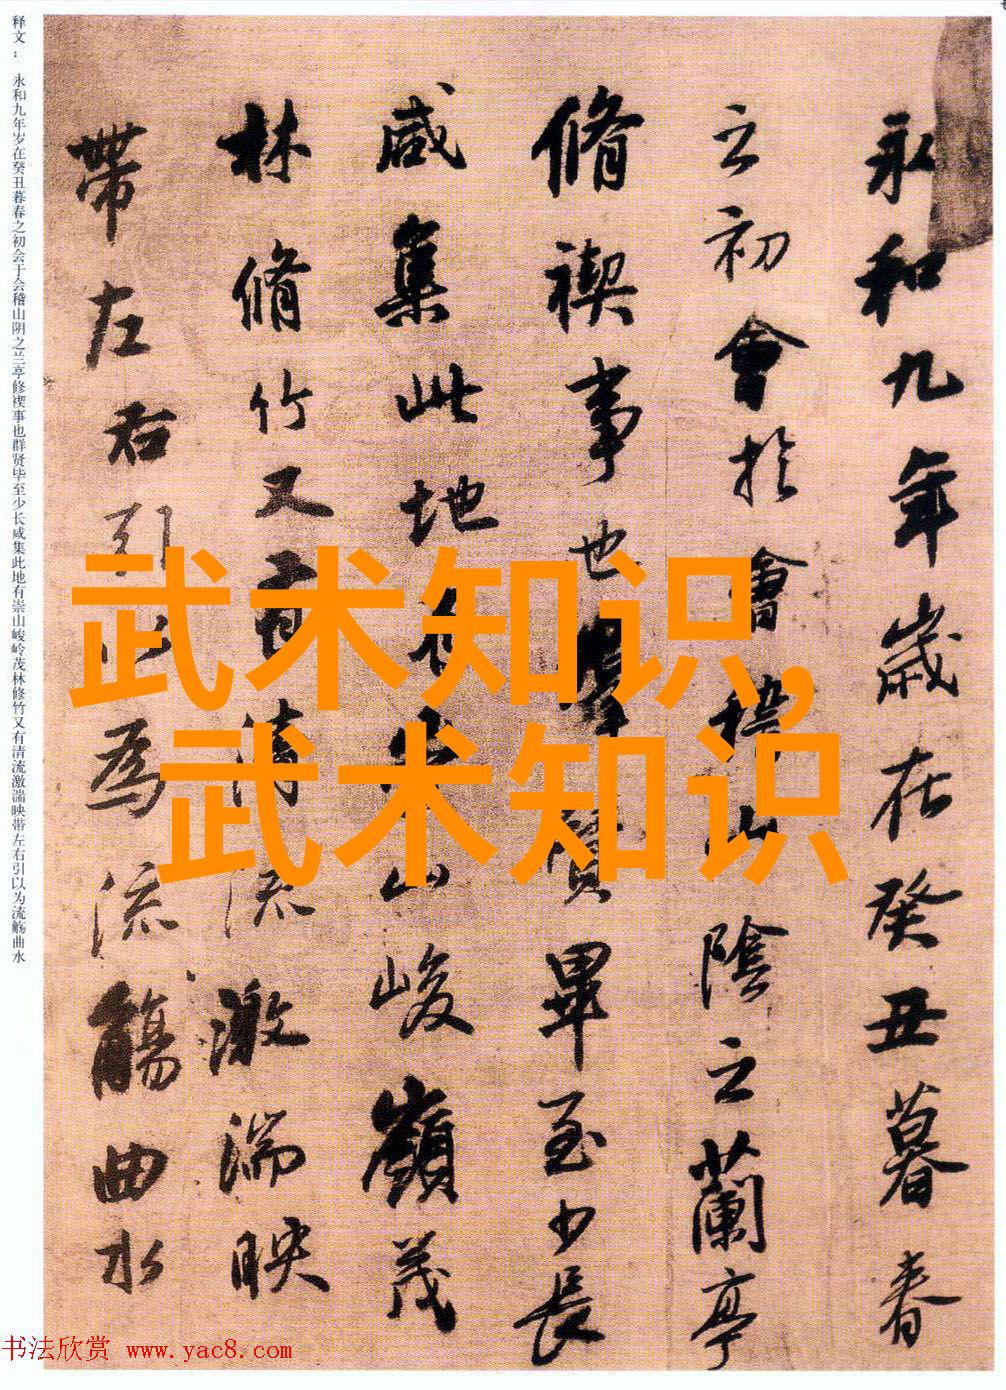 永和九年歲在癸丑暮春
之初會於會稽山陰之蘭亭
脩禊事也羣賢畢至少長
咸集此地有崇山峻嶺茂
林脩竹又有清流激湍映
帶左右引以為流觴曲水
释文：永和九年岁在癸丑暮春之初会于会稽山阴之兰亭修禊事也群贤毕至少长咸集此地有崇山峻岭茂林修竹又有清流激湍映带左右引以为流觞曲水
武术知识,
武术知识
书法欣赏 www.yac8.com